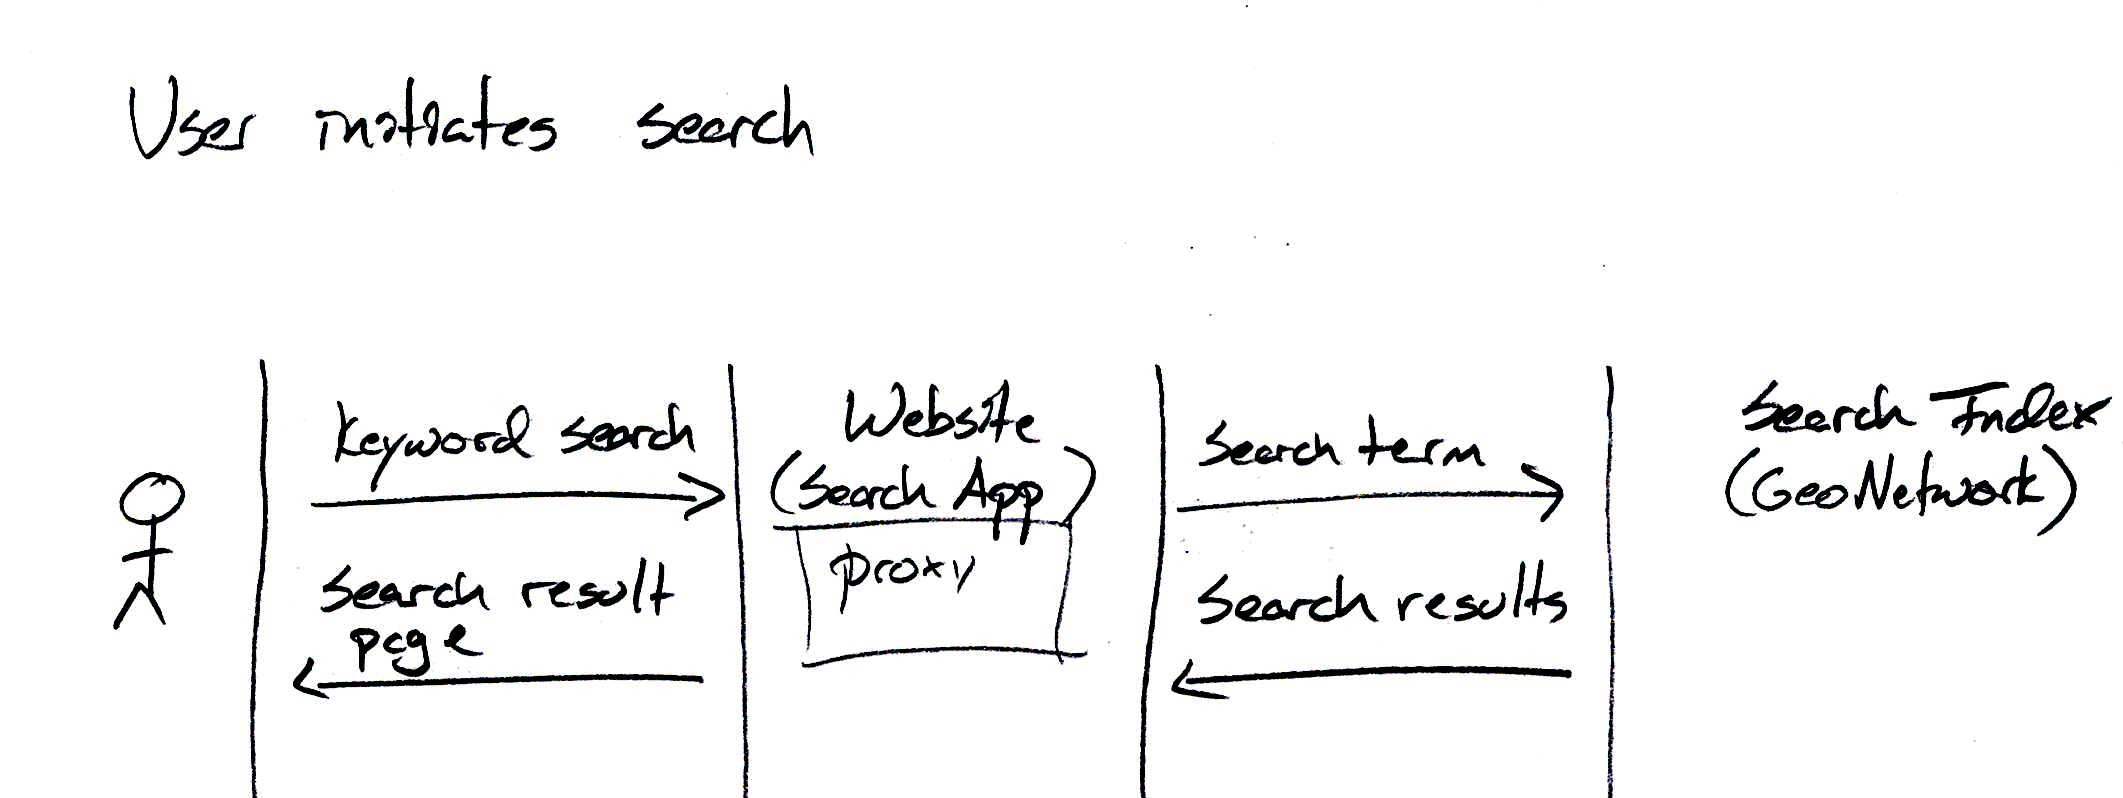 User initiates search
Keyword search
Search result
page
Website
(Search App)
proxy
Search term
Search results
Search Index
(GeoNetwork)